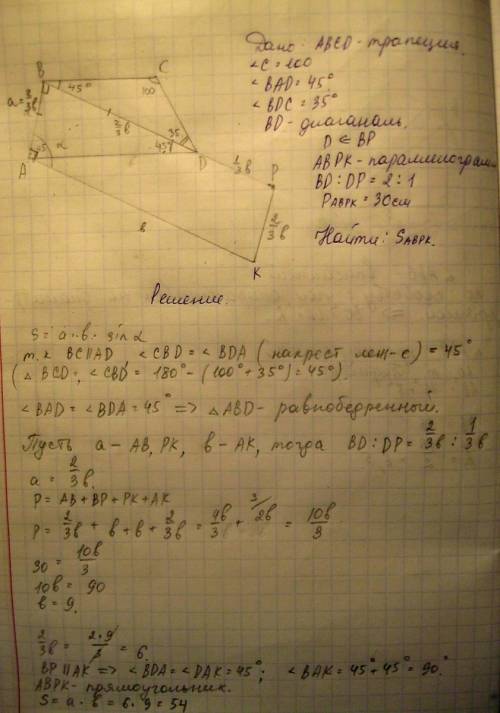 Дано: ABCD - трапеция.
∠C = 100
∠BAD = 45°
∠BDC = 35°
BD - диагональ.
D ∈ BP
ABPK - параллелограмм
BD : DP = 2 : 1
P ABPK = 30см
Найти: S ABPK.
B
C
45°
100
a = 2/3в
2/3в
35
45°
D
1/3в
P
A
45
α
в
2/3в
K
Решение.
S = a · в · sin α
т.к BC || AD, ∠CBD = ∠BDA (накрест леж-е) = 45°
(△BCD, ∠CBD = 180° - (100° + 35°) = 45°).
∠BAD = ∠BDA = 45° => △ABD - равнобедренный.
Пусть a - AB, PK, в - AK, тогда BD : DP = 2/3в : 1/3в
a = 2/3в.
P = AB + BP + PK + AK
P = 2/3в + в + в + 2/3в = 4в/3 + 3/2в = 10в/3
30 = 10в/3
10в = 90
в = 9.
2/3в = 2·9/3 = 6.
BP || AK => ∠BDA = ∠DAK = 45°; ∠BAK = 45° + 45° = 90°
ABPK - прямоугольник.
S = a · в = 6 · 9 = 54